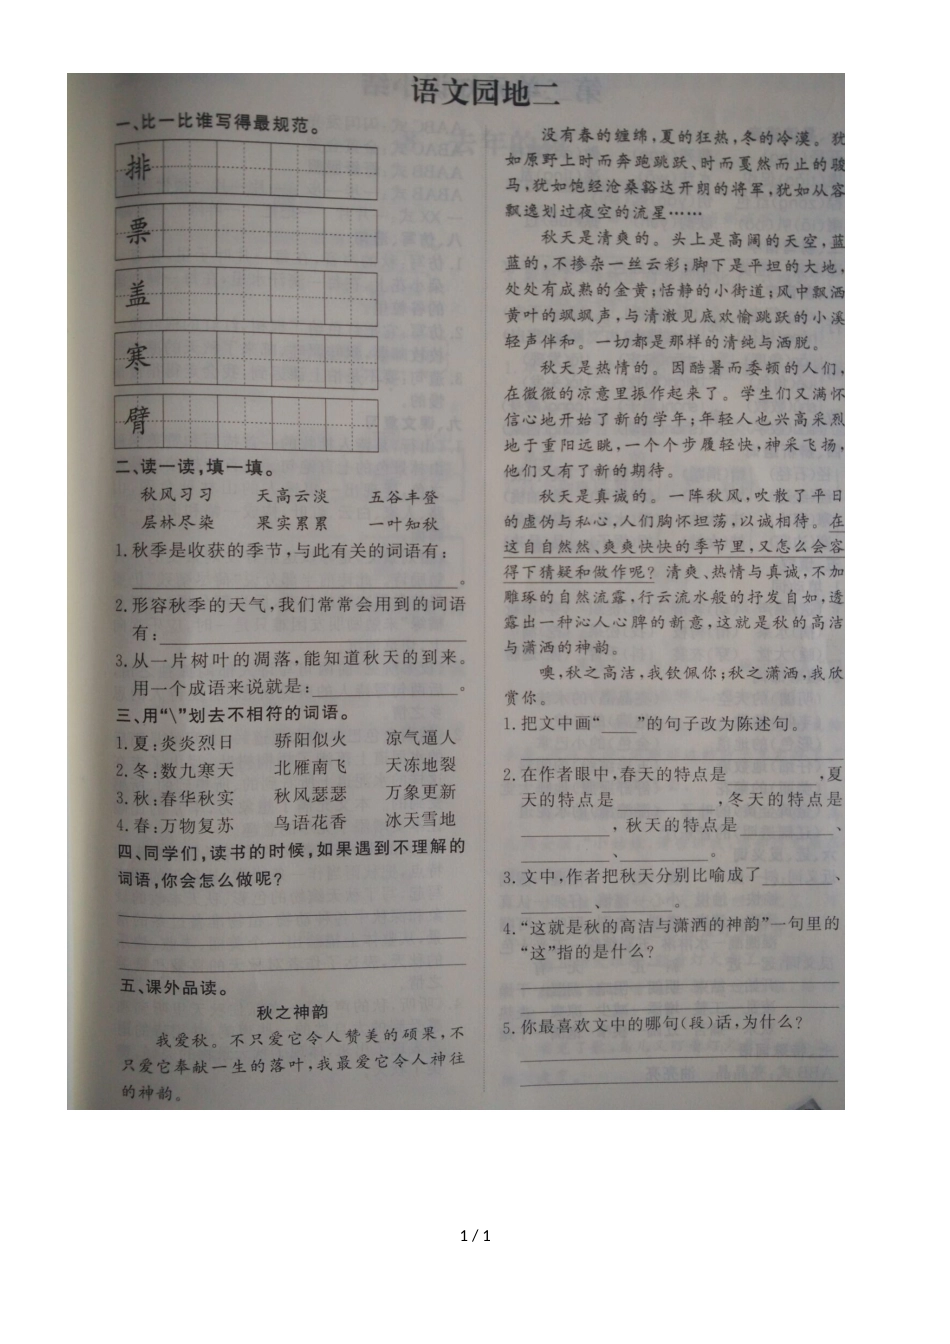 语文园地二
一、比一比谁写得最规范。
排
票
盖
寒
臂
二、读一读,填一填。
秋风习习 天高云淡 五谷丰登
层林尽染 果实累累 一叶知秋
1.秋季是收获的季节,与此有关的词语有:
。
2.形容秋季的天气,我们常常会用到的词语
有:
3.从一片树叶的凋落,能知道秋天的到来。
用一个成语来说就是: 。
三、用“\”划去不相符的词语。
1.夏:炎炎烈日 骄阳似火 凉气逼人
2.冬:数九寒天 北雁南飞 天冻地裂
3.秋:春华秋实 秋风瑟瑟 万象更新
4.春:万物复苏 鸟语花香 冰天雪地
四、同学们,读书的时候,如果遇到不理解的
词语,你会怎么做呢?
五、课外品读。
秋之神韵
我爱秋。不只爱它令人赞美的硕果,不
只爱它奉献一生的落叶,我最爱它令人神往
的神韵。
没有春的缠绵,夏的狂热,冬的冷漠。犹
如原野上时而奔跑跳跃、时而戛然而止的骏
马,犹如饱经沧桑豁达开朗的将军,犹如从容
飘逸划过夜空的流星……
秋天是清爽的。头上是高阔的天空,蓝
蓝的,不掺杂一丝云彩;脚下是平坦的大地,
处处有成熟的金黄;恬静的小街道;风中飘洒
黄叶的飒飒声,与清澈见底欢愉跳跃的小溪
轻声伴和。一切都是那样的清纯与洒脱。
秋天是热情的。因酷暑而委顿的人们,
在微微的凉意里振作起来了。学生们又满怀
信心地开始了新的学年;年轻人也兴高采烈
地于重阳远眺,一个个步履轻快,神采飞扬,
他们又有了新的期待。
秋天是真诚的。一阵秋风,吹散了平日
的虚伪与私心,人们胸怀坦荡,以诚相待。在
这自自然然、爽爽快快的季节里,又怎么会容
得下猜疑和做作呢?清爽、热情与真诚,不加
雕琢的自然流露,行云流水般的抒发自如,透
露出一种沁人心脾的新意,这就是秋的高洁
与潇洒的神韵。
噢,秋之高洁,我钦佩你;秋之潇洒,我欣
赏你。
1.把文中画“____”的句子改为陈述句。
2.在作者眼中,春天的特点是 ,夏
天的特点是 ,冬天的特点是
,秋天的特点是 、
、 。
3.文中,作者把秋天分别比喻成了 、
、 。
4.“这就是秋的高洁与潇洒的神韵”一句里的
“这”指的是什么?
5.你最喜欢文中的哪句(段)话,为什么?
1 / 1